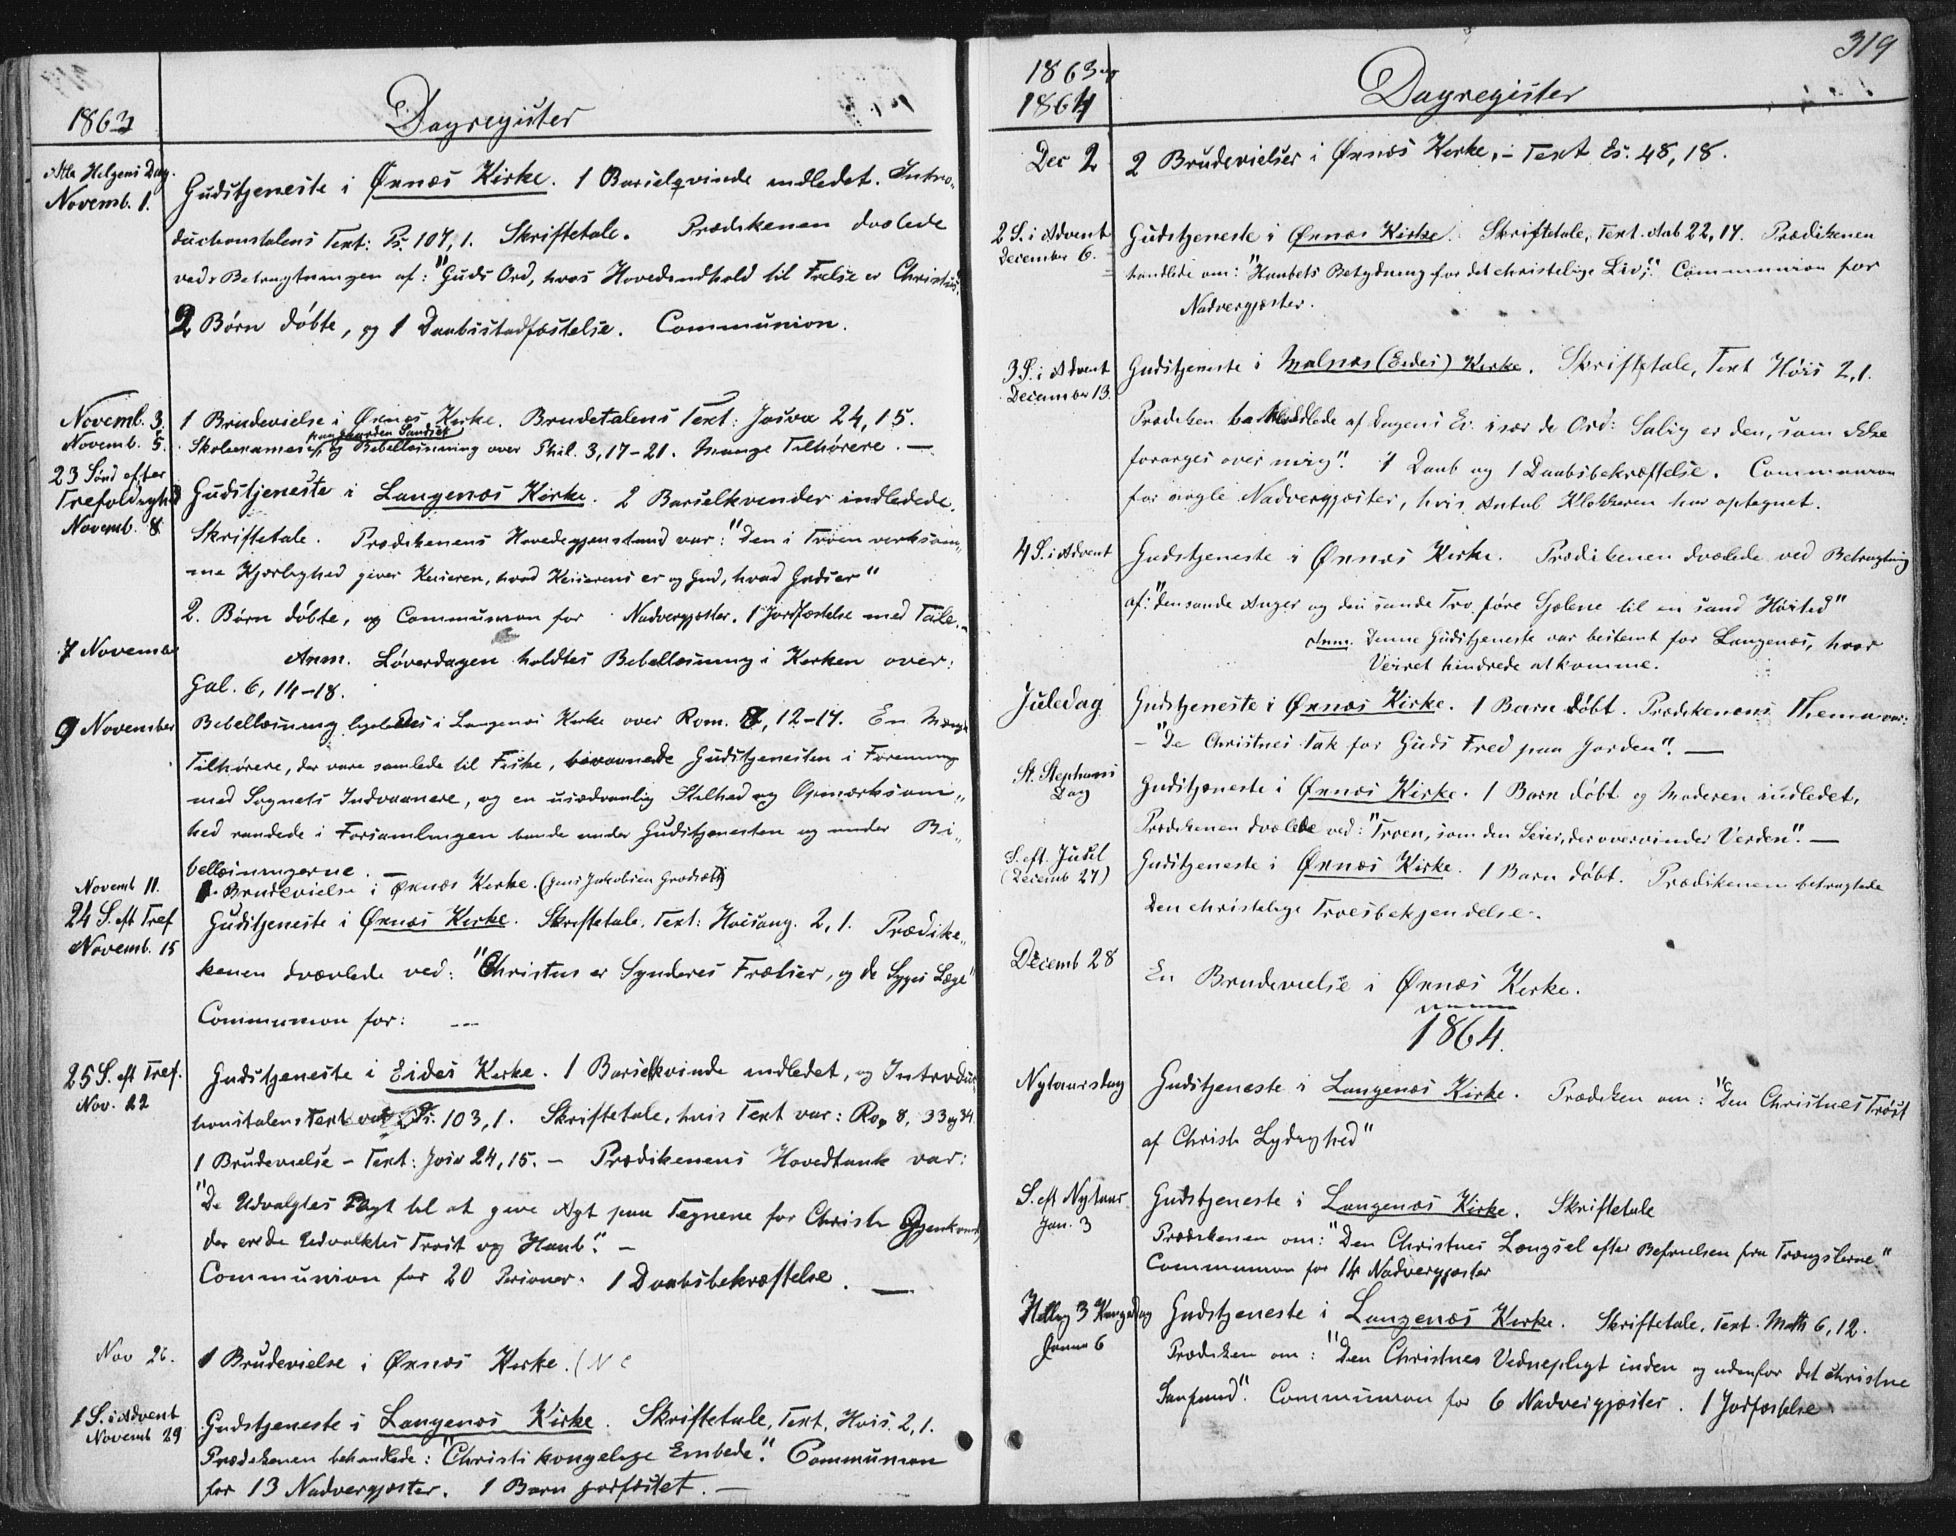 1863
Dagregister
Alle Helgens Dag.
Novemb. 1.
Gudstjeneste i Øxnæs Kirke. 1 Barselqvinde indledet. Intro-
duchonstalens Text: Ps. 107,1. Skriftetale. Prædikenen dvælede
ved Betragtningen af: "Guds Ord, hvis Hovedindhold til Frelse er Christus.
2 Børn døbte, og 1 Daabsstadfæstelse. Communion.
Novemb. 3.
1 Brudevielse i Øxnæs Kirke. Brudetalens Text: Josva 24,15.
Novemb. 5.
paa Gaarden Sandset
Skoleexamen og Bibellæsning over Phil. 3,17-21. Mange Tilhørere. —
23 Sønd efter
Trefoldighed
Novemb. 8
Gudstjeneste i Langenæs Kirke. 2 Barselkvinder indledede.
Skriftetale. Prædikenens Hovedgjenstand var: "Den i Troen virksom-
me Kjærlighed giver Keiseren, hvad Keiserens er og Gud, hvad Guds er"
2. Børn døbte, og Communion for Nadvergjæster. 1 Jordfæstelse med Tale.-
7 November
Anm. Løverdagen holdtes Bibellæsning i Kirken over:
Gal. 6, 14-18.
9 November
Bibellæsning ligeledes i Langenæs Kirke over Rom. 8, 12-17. En Mængde
Tilhørere, der vare samlede til Fiske, bivaanede Gudstjenesten i Forening
med Sognets Indvaanere, og en usædvanlig Stilhed og Opmærksom-
hed raadede i Forsamlingen baade under Gudstjenesten og under Bi-
bellæsningerne. —
Novemb 11.
1 Brudevielse i Øxnæs Kirke. (Jens Jakobsen Grødsæt)
24 S. eft Tref
Novemb. 15
Gudstjeneste i Øxnæs Kirke. Skriftetale, Text: Hoisang. 2,1. Prædike-
kenen dvævlede ved: "Christus er Synderes Frælser, og de Syges Læge"
Communion for: ---
25 S. eft Tref.
Nov. 22
Gudstjeneste i Eides Kirke. 1 Barselkvinde indledet, og Introduk-
honstalens Text var Ps. 103,1. Skriftetale, hvis Text var: Rom 8, 33 og 34.
1 Brudevielse - Text: Josv 24,15. - Prædikenens Hovedtank var:
"De Udvalgtes Pligt til at give Agt paa Tegnene for Christi Gjenkomst,
der er de Udvalktes Trøst og Haab". -
Communion for 20 Personer. 1 Daabsbekræftelse. —
Nov 26.
1 Brudevielse i Øxnæs Kirke. (N
1 S. i Advent
Novemb 29
Gudstjeneste i Langenæs Kirke. Skriftetale, Text, Høis. 2,1.
Prædikenen behandlede: "Christi kongelige Embede". Communion
for 13 Nadvergjæster. 1 Barn jordfæstet. —
319
1863 og
1864
Dagregister
Dec 2
2 Brudevielser i Øxnæs Kirke, - Text Es. 48, 18.
2 S. i Advent
December 6.
Gudstjeneste i Øxnæs Kirke. Skriftetale, Text. Aab 22,17. Prædikenen
handlede om: "Haabets Betydning for det christelige Liv;" Communion for
Nadvergjæster.
3 S. i Advent
December 13
Gudstjeneste i Malnæs (Eides) Kirke. Skriftetale, Text Høis 2,1.
Prædiken behandlede af Dagens Ev. især de Ord: Salig er den, som ikke
forarges over mig". 1 Daab og 1 Daabsbekræftelse. Communion
for nogle Nadvergjæster, hvis Antal Klokkeren har optegnet.
4 S. i Advent
Gudstjeneste i Øxnæs Kirke. Prædikenen dvælede ved Betragtning
af: "den sande Anger og den sande Tro føre Sjælene til en sand Høitid"
Anm. Denne Gudstjeneste var bestemt for Langenæs, hvor
Veiret hindrede at komme.
Juledag
Gudstjeneste i Øxnæs Kirke. 1 Barn døbt. Prædikenens Thema var:
- "De Christnes Tak for Guds Fred paa Jorden". —
St. Stephans
Dag
Gudstjeneste i Øxnæs Kirke. 1 Barn døbt og Moderen indledet,
Prædikenen dvælede ved: "Troen, som den Seier, der overvinder Verden". —
S. eft. Juul
(Decemb 27)
Gudstjeneste i Øxnæs Kirke. 1 Barn døbt. Prædikenen betragtede
Den christelige Troesbekjendelse.
Decemb 28
En Brudevielse i Øxnæs Kirke.
1864.
Nytaarsdag
Gudstjeneste i Langenæs Kirke. Prædiken om: "Den Christnes Trøst
af Christi Lydighed"
S. eft Nytaar
Jan. 3
Gudstjeneste i Langenæs Kirke. Skriftetale
Prædikenen om: "Den Christnes Længsel efter Befrielsen fra Trængslerne"
Communion for 14 Nadvergjæster
Hellig 3 Kongedag
Januar 6
Gudstjeneste i Langenæs Kirke. Skriftetale, Text. Math 6,12.
Prædiken om: "Den Christnes Vidnepligt inden og udenfor det christne
Samfund". Communion for 6 Nadvergjæster. 1 Jordfæstelse